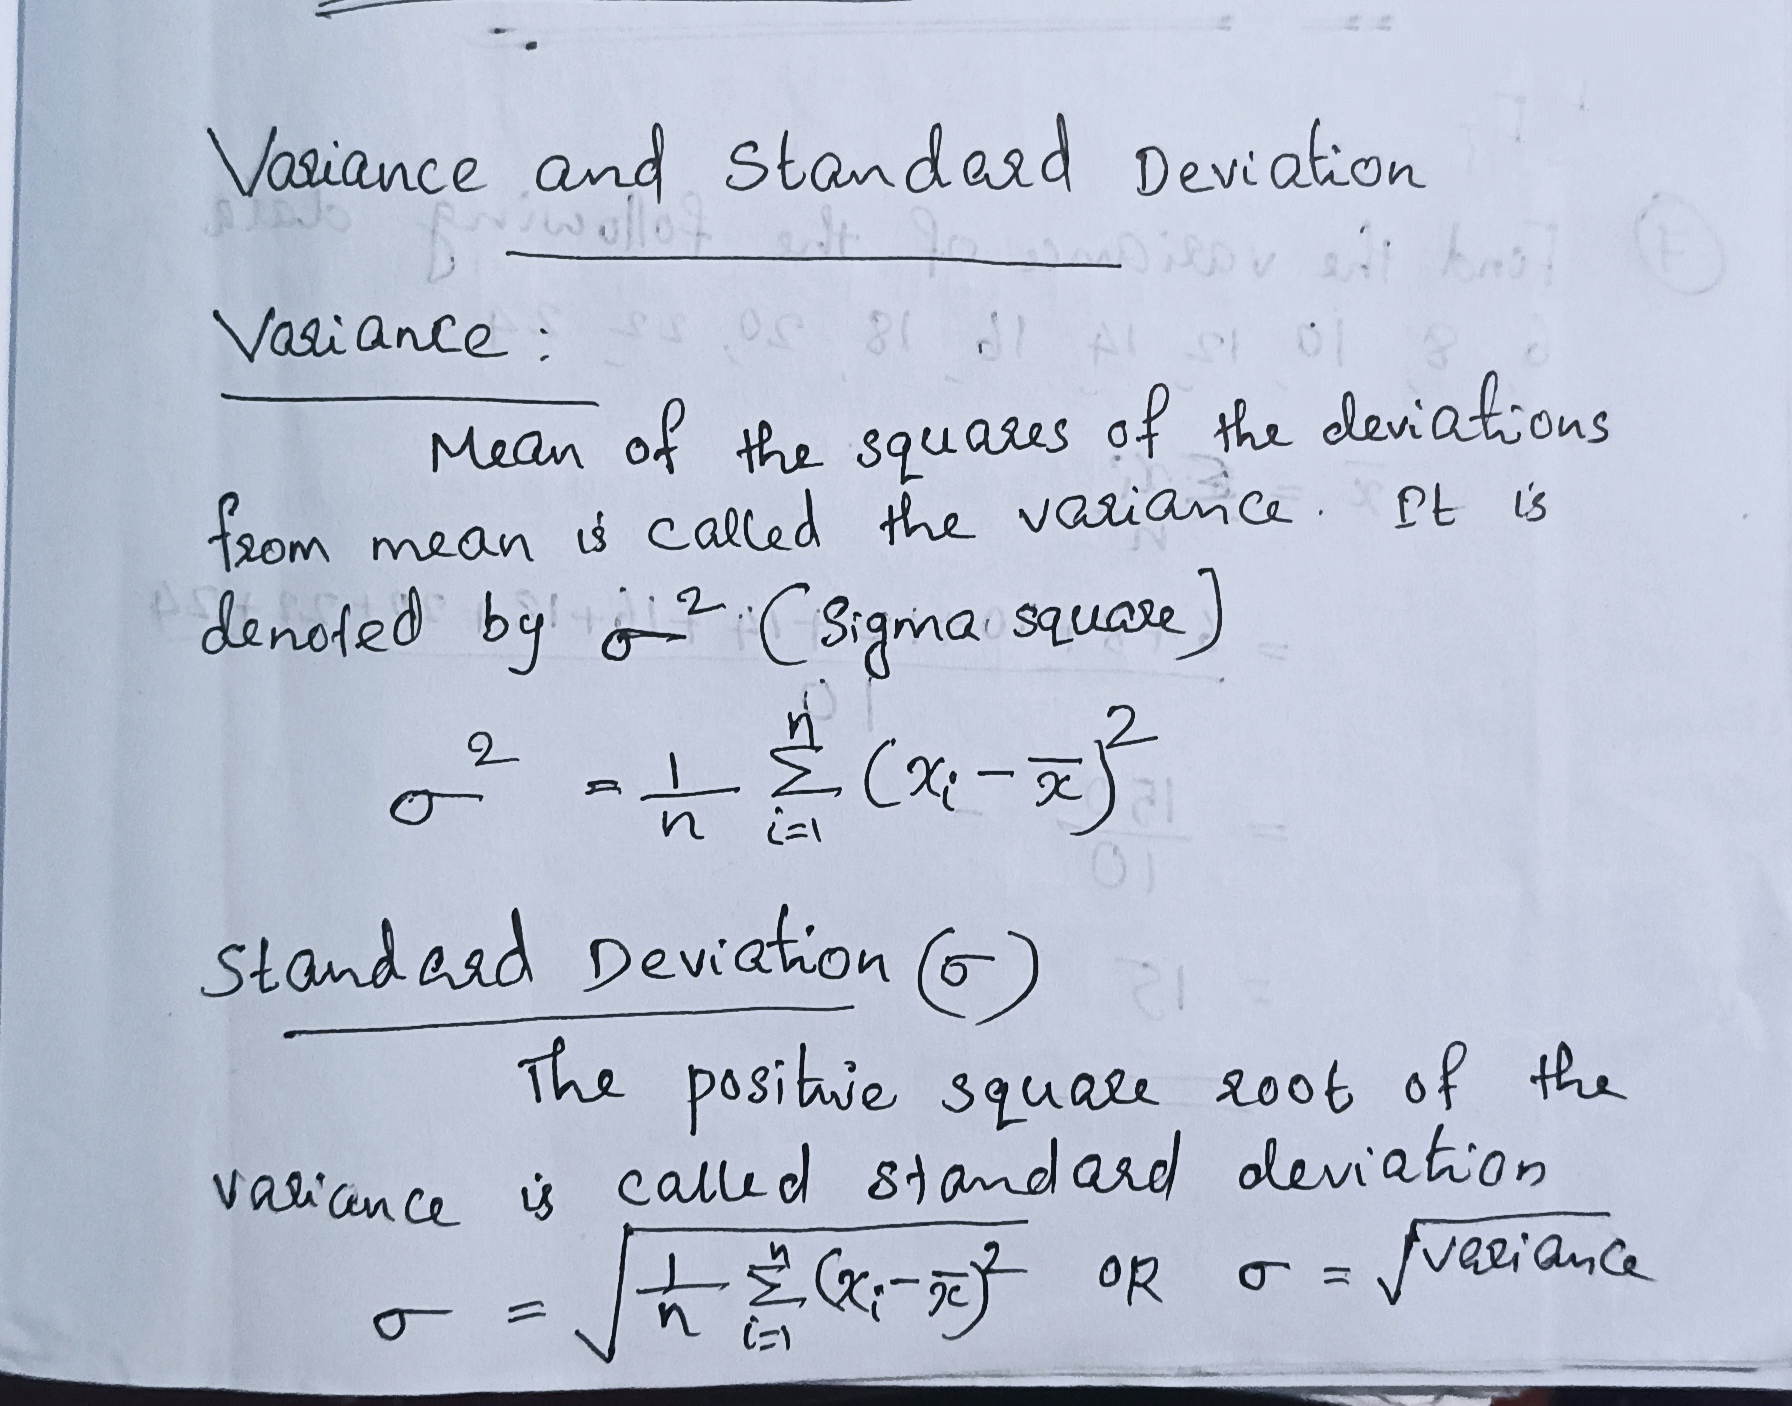 Variance and Standard Deviation
Variance :
Mean of the squares of the deviations
from mean is called the variance. It is
denoted by σ² (Sigma square)
σ² = 1/n Σⁿᵢ₌₁ (xᵢ - x̄)²
Standard Deviation (σ)
The positive square root of the
variance is called standard deviation
σ = √(1/n Σⁿᵢ₌₁ (xᵢ - x̄)²) OR σ = √variance